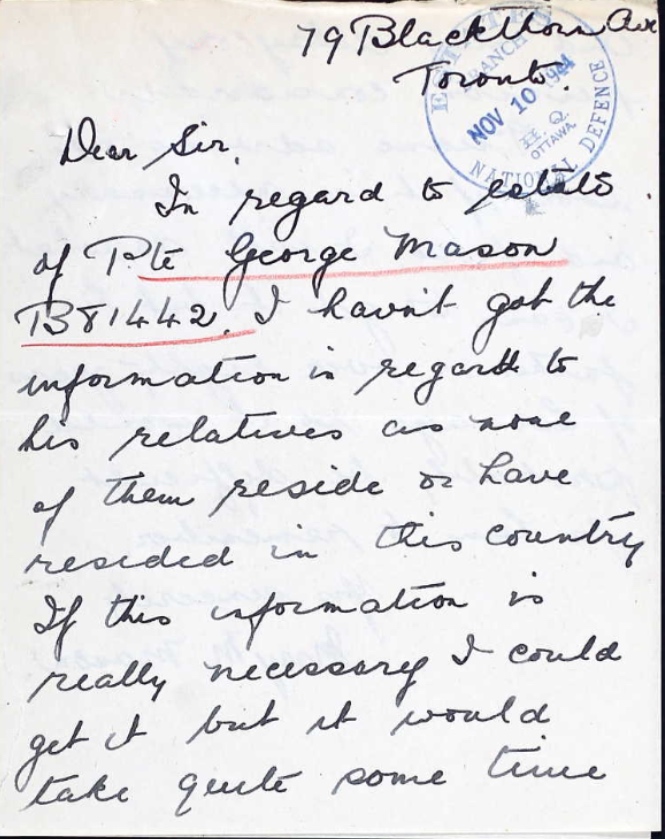 79 Blackthorn Ave
Toronto.
ESTATES
BRANCH
NOV 10 1944
H. Q.
OTTAWA
NATIONAL DEFENCE
Dear Sir,
In regard to estate
of Pte George Mason
B81442. I havn't got the
information in regards to
his relatives as none
of them reside or have
resided in this country
If this information is
really necessary I could
get it but it would
take quite some time